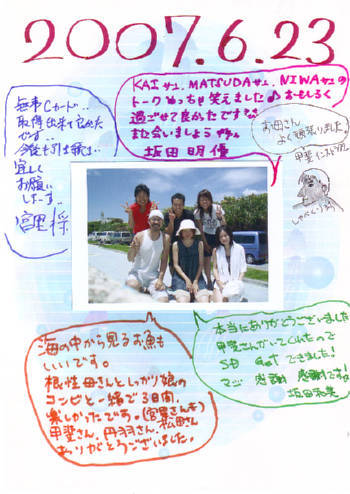 2007.6.23
KAIサン、MATSUDAサン、NIWAサンの
トークめっちゃ笑えました♪おもしろく
過ごせて良かったですな
また会いましょうやぁ。
坂田明優
無事Cカード..
取得出来て良かった
です..
今後も引き続き..
宜しく
お願い
しまーす
宮里 将
お母さん
よく頑張りました。
甲斐インストラクター
海の中から見るお魚も
いいです。
根性母さんとしっかり娘の
コンビと一緒で3日間、
楽しかったです。(宮里さんも)
甲斐さん、丹羽さん、松田さん
ありがとうございました。
本当にありがとうございました
甲斐さんがいてくれたので
SD Getできました!
マジ 感謝 感謝です!
坂田和美